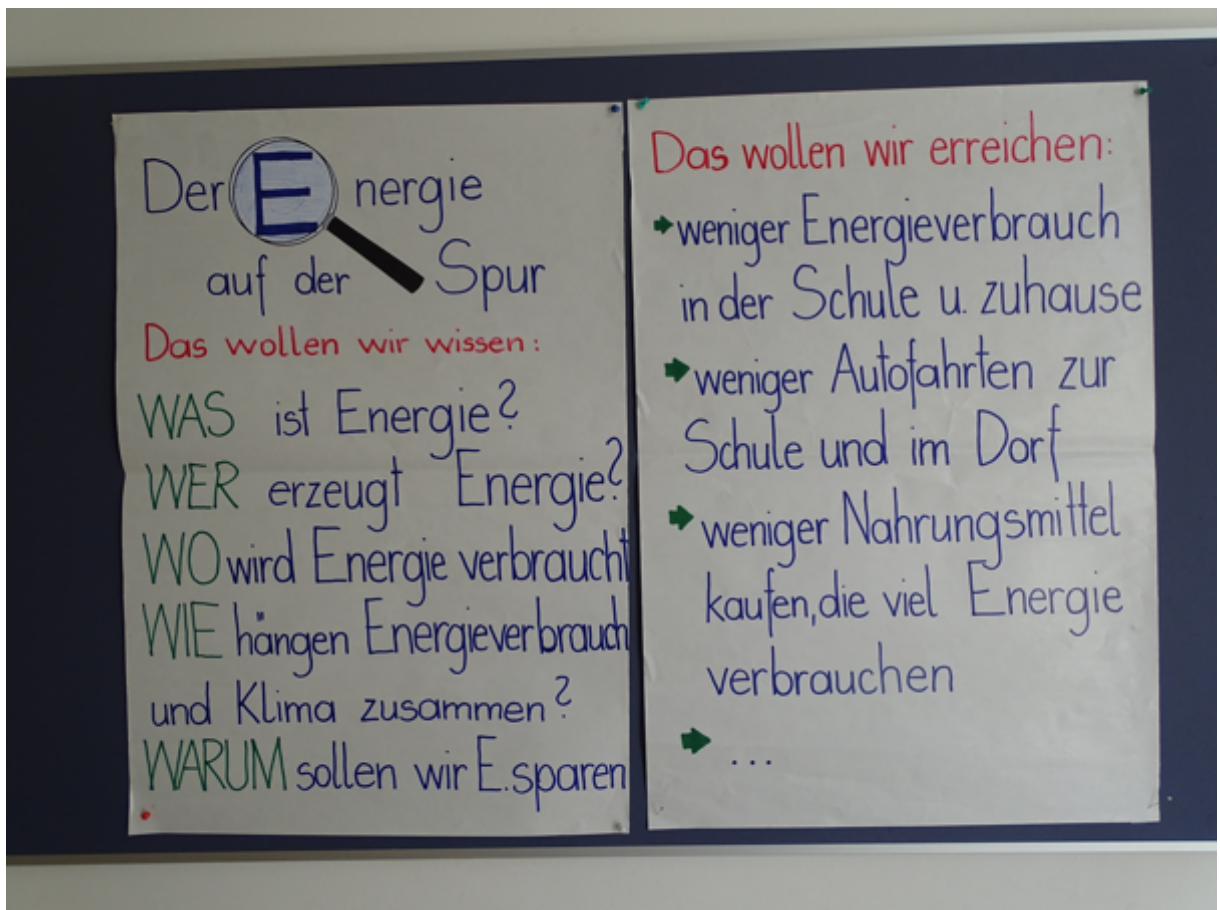 Der Energie
auf der Spur
Das wollen wir wissen:
WAS ist Energie?
WER erzeugt Energie?
WO wird Energie verbraucht
WIE hängen Energieverbrauch
und Klima zusammen?
WARUM sollen wir E. sparen
Das wollen wir erreichen:
weniger Energieverbrauch
in der Schule u. zuhause
weniger Autofahrten zur
Schule und im Dorf
weniger Nahrungsmittel
kaufen, die viel Energie
verbrauchen
...